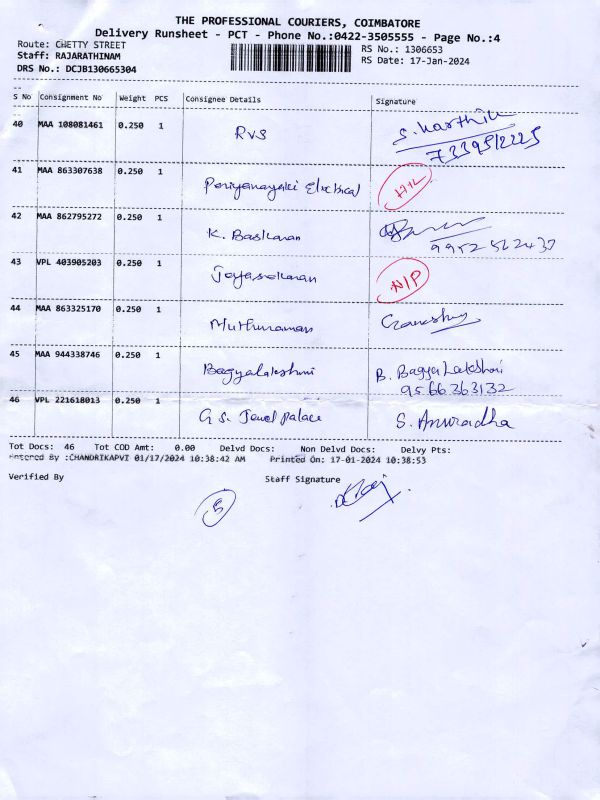 THE PROFESSIONAL COURIERS, COIMBATORE
Delivery Runsheet - PCT - Phone No.:0422-3505555 - Page No.:4
Route: CHETTY STREET RS No.: 1306653
Staff: RAJARATHINAM RS Date: 17-Jan-2024
DRS No.: DCJB130665304
S No Consignment No Weight PCS Consignee Details Signature
40 MAA 108081461 0.250 1 RVS S. Karthik
7339512225
41 MAA 863307638 0.250 1 Periyanayaki Electrical
42 MAA 862795272 0.250 1 K. Baskaran
9952562437
43 VPL 403905203 0.250 1 Jayasekaran N/P
44 MAA 863325170 0.250 1 Muthuraman
45 MAA 944338746 0.250 1 Bagyalakshmi B. Bagya Lakshmi
9566363132
46 VPL 221618013 0.250 1 G.S. Jewel Palace S. Anuradha
Tot Docs: 46 Tot COD Amt: 0.00 Delvd Docs: Non Delvd Docs: Delvy Pts:
Entered By :CHANDRIKAPVI 01/17/2024 10:38:42 AM Printed On: 17-01-2024 10:38:53
Verified By Staff Signature
5